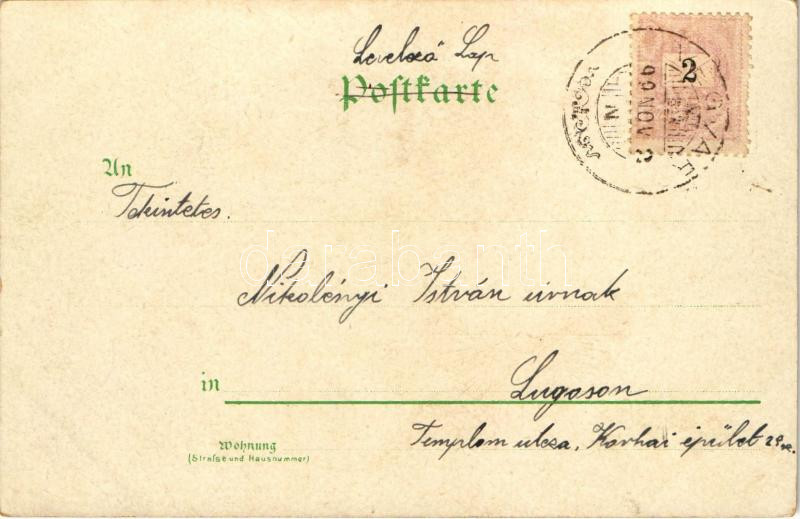 Levelező Lap
Postkarte
2
99 NOV
An
Tekintetes.
Nikolényi István úrnak
in Lugoson
Templom utcza, Korhai épület 29
Wohnung
(Strasse und Hausnummer)
darabanth